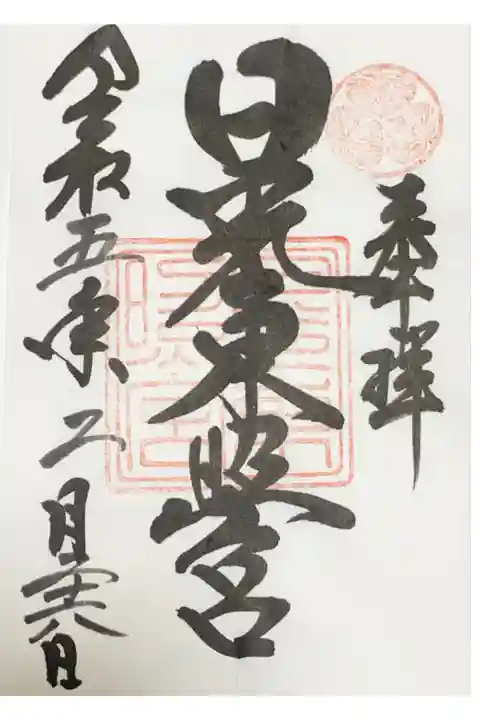 奉拝
日光東照宮
令和五年二月二十八日